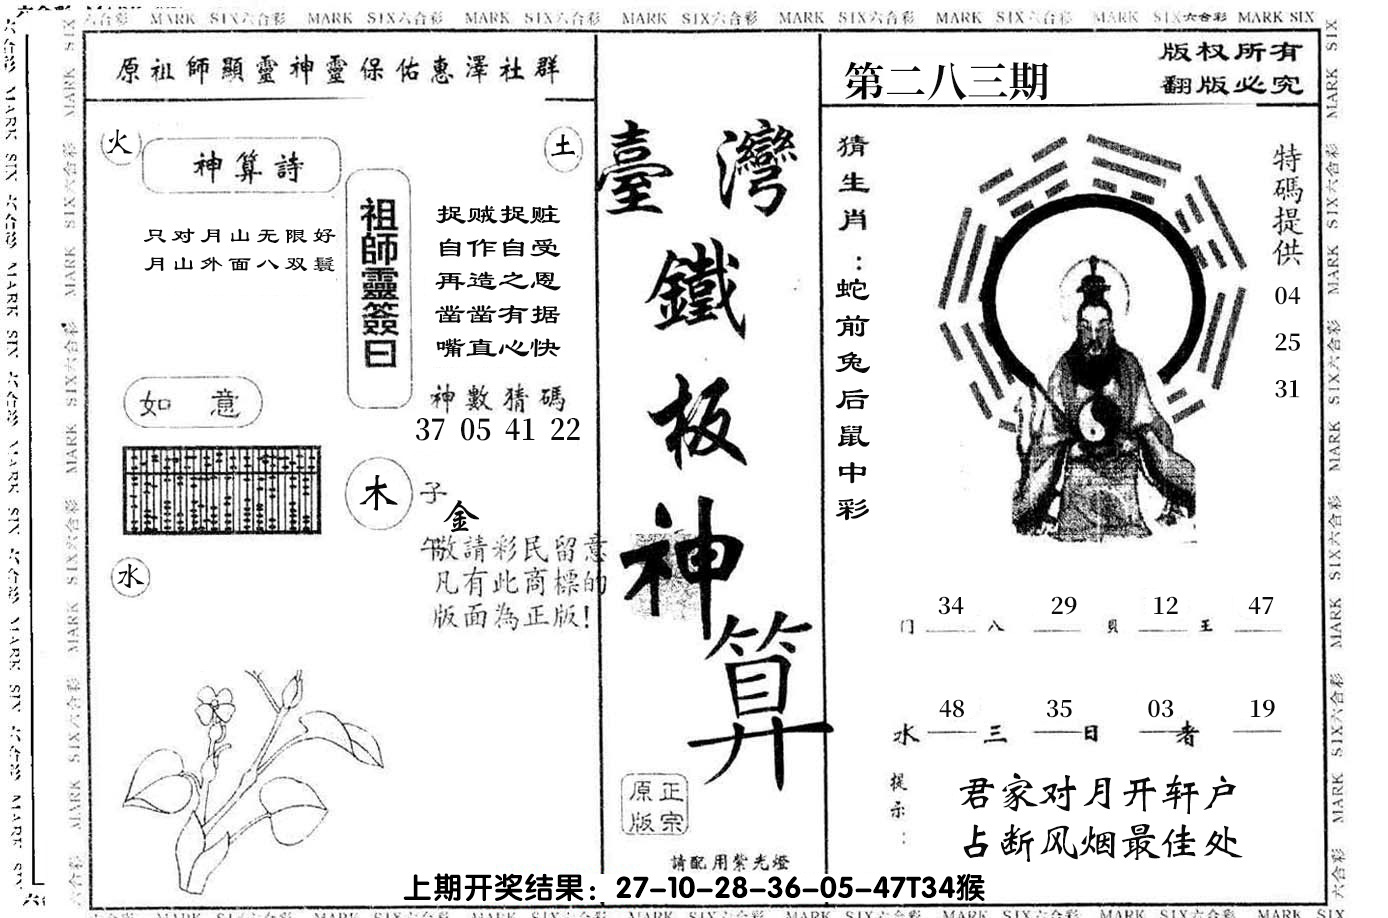 MARK SIX六合彩 MARK SIX六合彩 MARK SIX六合彩 MARK SIX六合彩 MARK SIX六合彩 MARK SIX六合彩 MARK SIX六合彩 MARK SIX
原祖師顯靈神靈保佑惠澤社群
火
神算詩
土
只对月山无限好
月山外面八双鬟
祖師靈簽曰
捉贼捉赃
自作自受
再造之恩
凿凿有据
嘴直心快
神數猜碼
37 05 41 22
如意
木
子
金
午
水
敬請彩民留意
凡有此商標的
版面為正版!
臺灣
鐵
板
神
算
正宗
原版
請配用紫光燈
第二八三期
版权所有
翻版必究
猜生肖:蛇前兔后鼠中彩
特碼提供
04
25
31
34 29 12 47
门 八 貝 王
48 35 03 19
水 三 日 者
提示:
君家对月开轩户
占断风烟最佳处
上期开奖结果:27-10-28-36-05-47T34猴